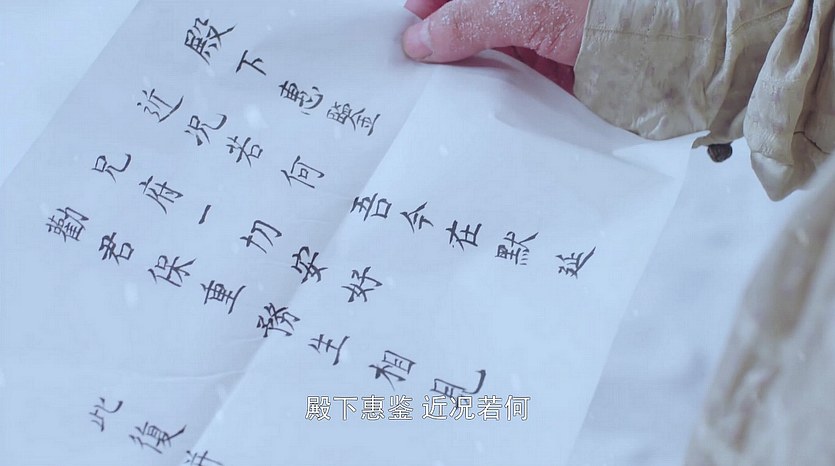 殿下惠鑒
近況若何 吾今在默延
兄府一切安好
勸君保重務生相見
此復
殿下惠鉴 近况若何